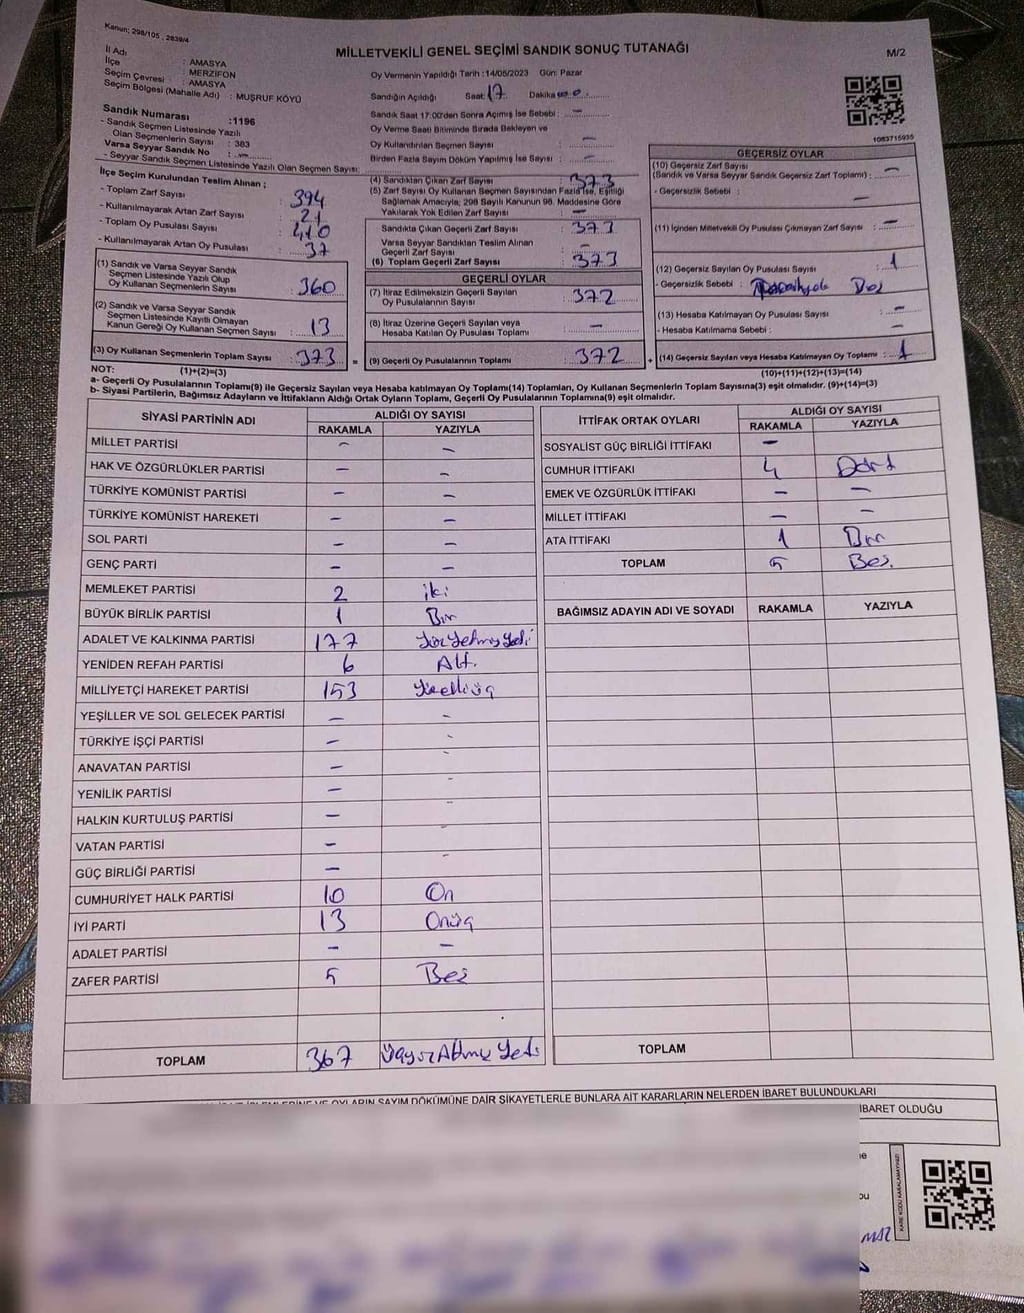 Kanun; 298/105 , 2839/4
MİLLETVEKİLİ GENEL SEÇİMİ SANDIK SONUÇ TUTANAĞI
M/2
İl Adı : AMASYA
İlçe : MERZİFON
Seçim Çevresi : AMASYA
Seçim Bölgesi (Mahalle Adı) : MUŞRUF KÖYÜ
Sandık Numarası :1196
- Sandık Seçmen Listesinde Yazılı
Olan Seçmenlerin Sayısı : 383
Varsa Seyyar Sandık No :
- Seyyar Sandık Seçmen Listesinde Yazılı Olan Seçmen Sayısı:
Oy Vermenin Yapıldığı Tarih :14/05/2023 Gün: Pazar
Sandığın Açıldığı Saat: 17 Dakika:
Sandık Saat 17:00'den Sonra Açımış İse Sebebi : -
Oy Verme Saati Bitiminde Sırada Bekleyen ve
Oy Kullandırılan Seçmen Sayısı : -
Birden Fazla Sayım Döküm Yapılmış İse Sayısı : -
1083715935
İlçe Seçim Kurulundan Teslim Alınan ;
- Toplam Zarf Sayısı : 394
- Kullanılmayarak Artan Zarf Sayısı : 21
- Toplam Oy Pusulası Sayısı : 410
- Kullanılmayarak Artan Oy Pusulası : 37
(1) Sandık ve Varsa Seyyar Sandık
Seçmen Listesinde Yazılı Olup
Oy Kullanan Seçmenlerin Sayısı : 360
(2) Sandık ve Varsa Seyyar Sandık
Seçmen Listesinde Kayıtlı Olmayan
Kanun Gereği Oy Kullanan Seçmen Sayısı : 13
(3) Oy Kullanan Seçmenlerin Toplam Sayısı : 373 =
(4) Sandıktan Çıkan Zarf Sayısı : 373
(5) Zarf Sayısı Oy Kullanan Seçmen Sayısından Fazla İse, Eşitliği
Sağlamak Amacıyla; 298 Sayılı Kanunun 98. Maddesine Göre
Yakılarak Yok Edilen Zarf Sayısı : -
Sandıkta Çıkan Geçerli Zarf Sayısı : 373
Varsa Seyyar Sandıktan Teslim Alınan
Geçerli Zarf Sayısı : -
(6) Toplam Geçerli Zarf Sayısı : 373
GEÇERLİ OYLAR
(7) İtiraz Edilmeksizin Geçerli Sayılan
Oy Pusulalarının Sayısı : 372
(8) İtiraz Üzerine Geçerli Sayılan veya
Hesaba Katılan Oy Pusulası Toplamı : -
(9) Geçerli Oy Pusulalarının Toplamı : 372 +
GEÇERSİZ OYLAR
(10) Geçersiz Zarf Sayısı
(Sandık ve Varsa Seyyar Sandık Geçersiz Zarf Toplamı) : -
- Geçersizlik Sebebi : -
(11) İçinden Milletvekili Oy Pusulası Çıkmayan Zarf Sayısı : -
(12) Geçersiz Sayılan Oy Pusulası Sayısı : 1
- Geçersizlik Sebebi :
(13) Hesaba Katılmayan Oy Pusulası Sayısı : -
- Hesaba Katılmama Sebebi : -
(14) Geçersiz Sayılan veya Hesaba Katılmayan Oy Toplamı : 1
NOT: (1)+(2)=(3) (10)+(11)+(12)+(13)=(14)
a- Geçerli Oy Pusulalarının Toplamı(9) ile Geçersiz Sayılan veya Hesaba katılmayan Oy Toplamı(14) Toplamları, Oy Kullanan Seçmenlerin Toplam Sayısına(3) eşit olmalıdır. (9)+(14)=(3)
b- Siyasi Partilerin, Bağımsız Adayların ve İttifakların Aldığı Ortak Oyların Toplamı, Geçerli Oy Pusulalarının Toplamına(9) eşit olmalıdır.
SİYASİ PARTİNİN ADI ALDIĞI OY SAYISI
RAKAMLA YAZIYLA
MİLLET PARTİSİ - -
HAK VE ÖZGÜRLÜKLER PARTİSİ - -
TÜRKİYE KOMÜNİST PARTİSİ - -
TÜRKİYE KOMÜNİST HAREKETİ - -
SOL PARTİ - -
GENÇ PARTİ - -
MEMLEKET PARTİSİ 2 iki
BÜYÜK BİRLİK PARTİSİ 1 Bir
ADALET VE KALKINMA PARTİSİ 177 YüzYetmişYedi
YENİDEN REFAH PARTİSİ 6 Altı
MİLLİYETÇİ HAREKET PARTİSİ 153 Yüzelliüç
YEŞİLLER VE SOL GELECEK PARTİSİ - -
TÜRKİYE İŞÇİ PARTİSİ - -
ANAVATAN PARTİSİ - -
YENİLİK PARTİSİ - -
HALKIN KURTULUŞ PARTİSİ - -
VATAN PARTİSİ -
GÜÇ BİRLİĞİ PARTİSİ - -
CUMHURİYET HALK PARTİSİ 10 On
İYİ PARTİ 13 Onüç
ADALET PARTİSİ - -
ZAFER PARTİSİ 5 Beş
TOPLAM 367 ÜçyüzAltmışYedi
İTTİFAK ORTAK OYLARI ALDIĞI OY SAYISI
RAKAMLA YAZIYLA
SOSYALİST GÜÇ BİRLİĞİ İTTİFAKI -
CUMHUR İTTİFAKI 4 Dört
EMEK VE ÖZGÜRLÜK İTTİFAKI - -
MİLLET İTTİFAKI - -
ATA İTTİFAKI 1 Bir
TOPLAM 5 Beş.
BAĞIMSIZ ADAYIN ADI VE SOYADI RAKAMLA YAZIYLA
TOPLAM
OYLARIN SAYIM DÖKÜMÜNE DAİR ŞİKAYETLERLE BUNLARA AİT KARARLARIN NELERDEN İBARET BULUNDUKLARI
İBARET OLDUĞU
KARE KODU KARALAMAYINIZ!